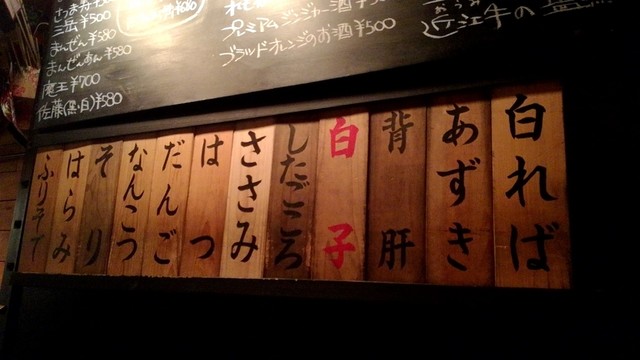 三岳¥500
まんぜん¥580
まんぜんあん¥580
魔王¥700
佐藤(黒・白)¥580
プレミアムジンジャー酒¥500
ブラッドオレンジのお酒¥500
近江牛の
白ればー
あずき
背肝
白子
したごころ
ささみ
はつ
だんご
なんこつ
そり
はらみ
ふりそで